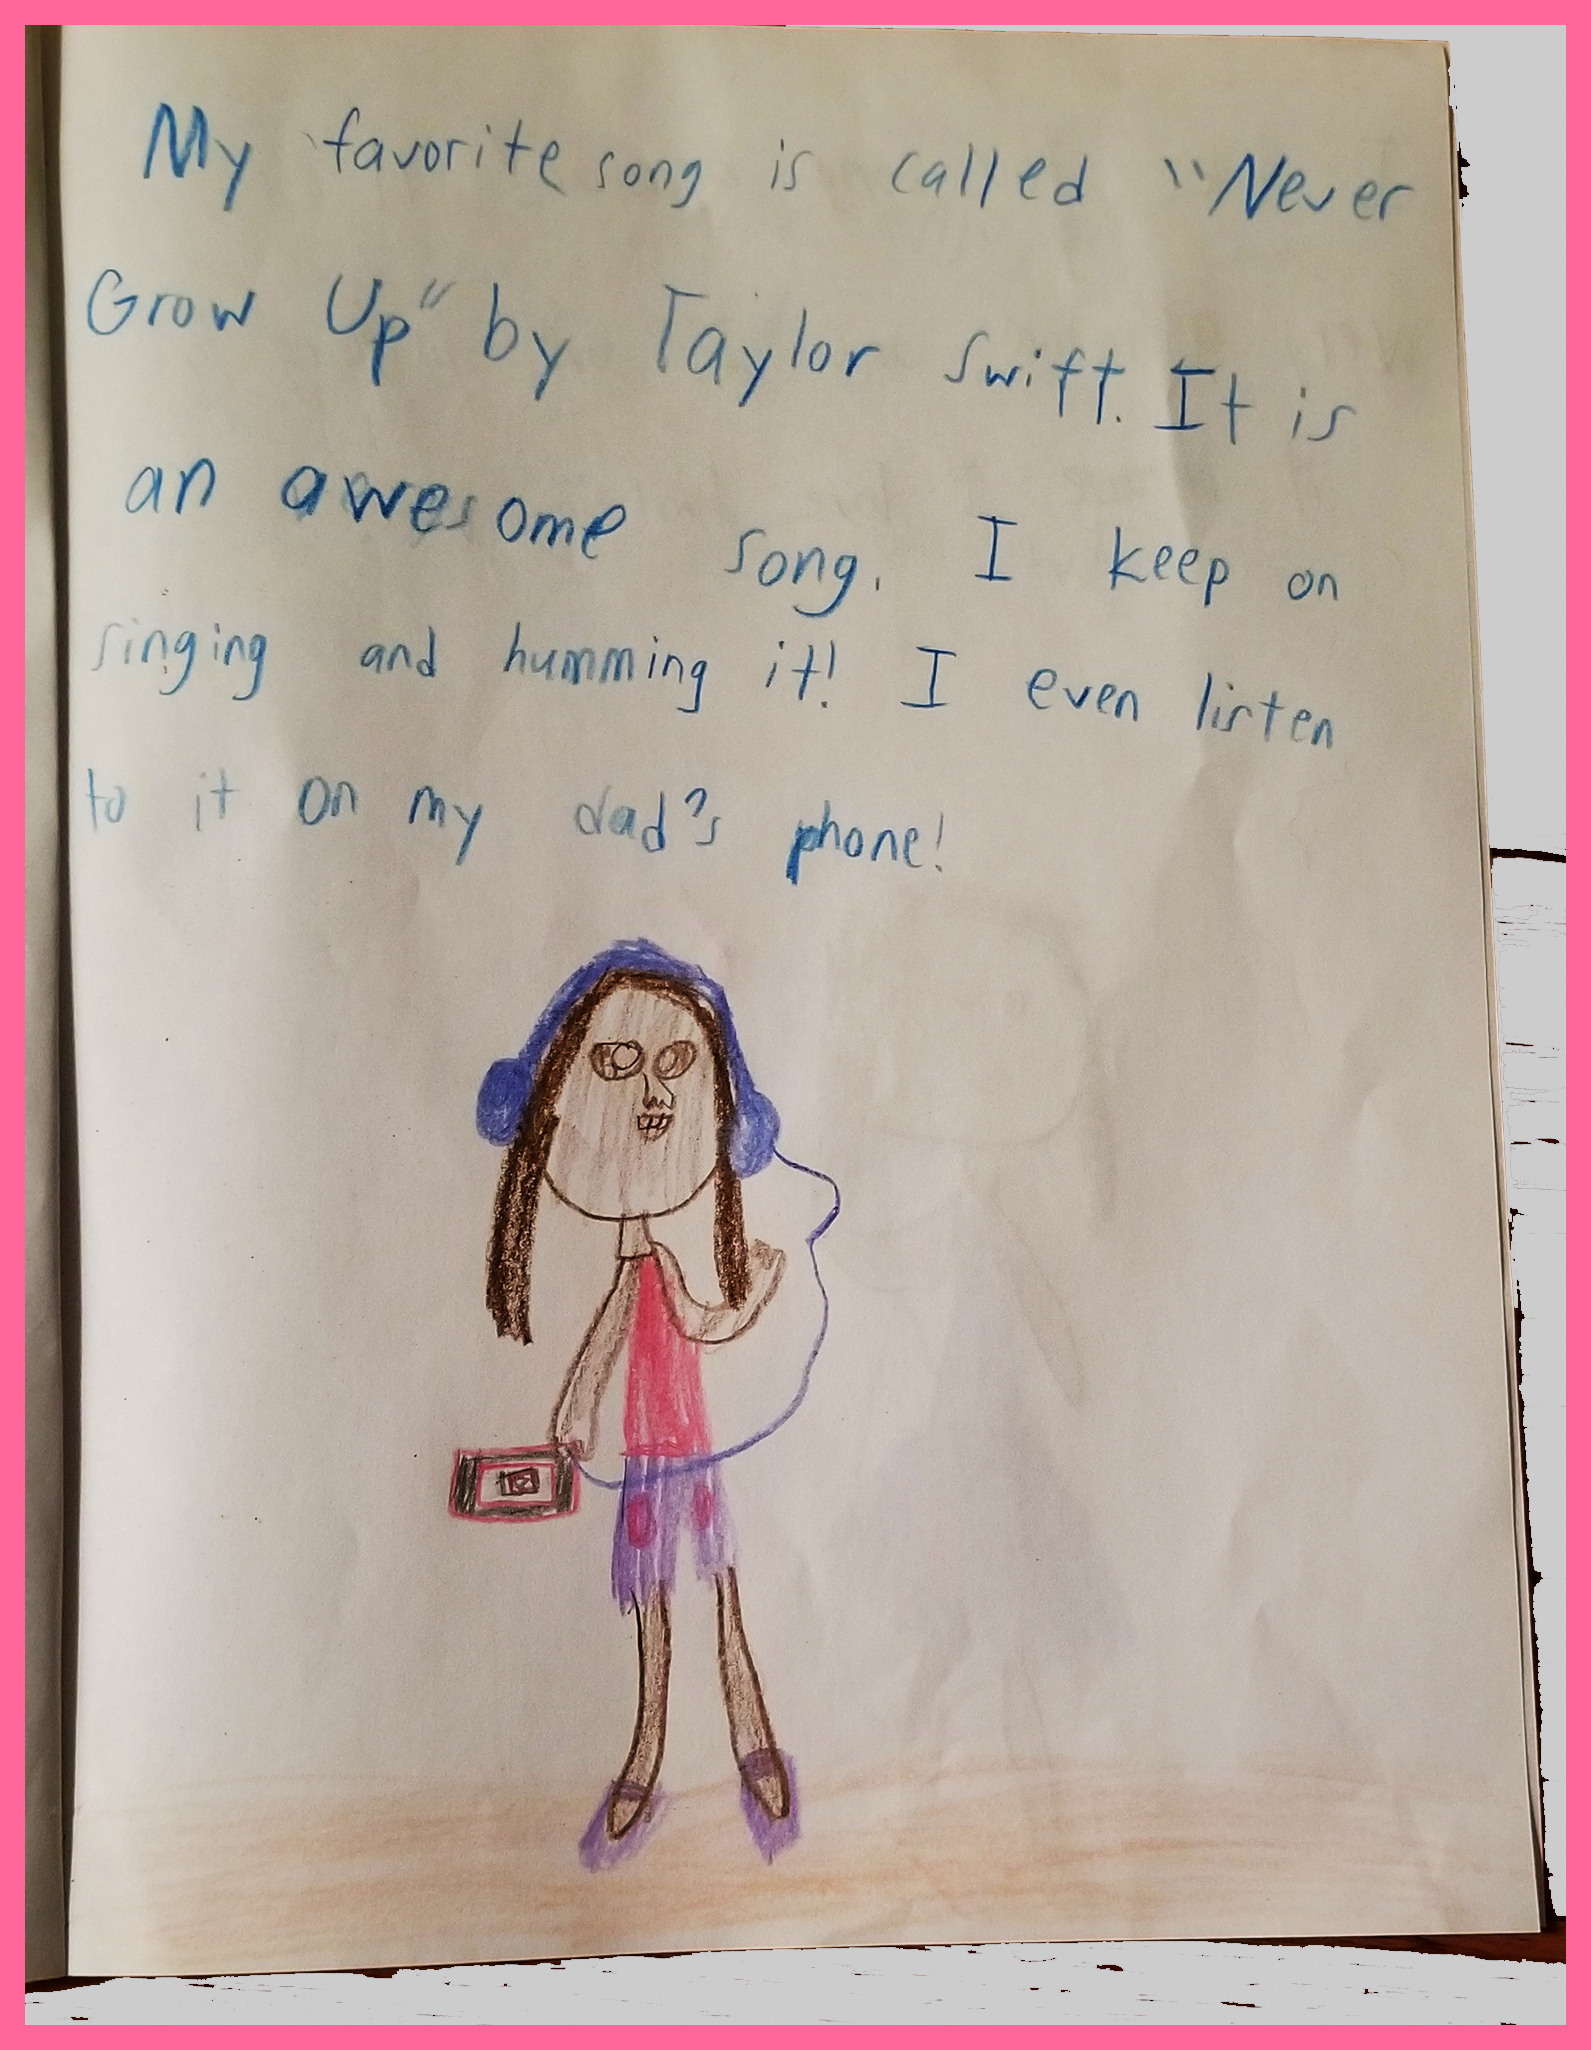 My favorite song is called "Never
Grow Up" by Taylor Swift. It is
an awesome song. I keep on
singing and humming it! I even listen
to it on my dad's phone!